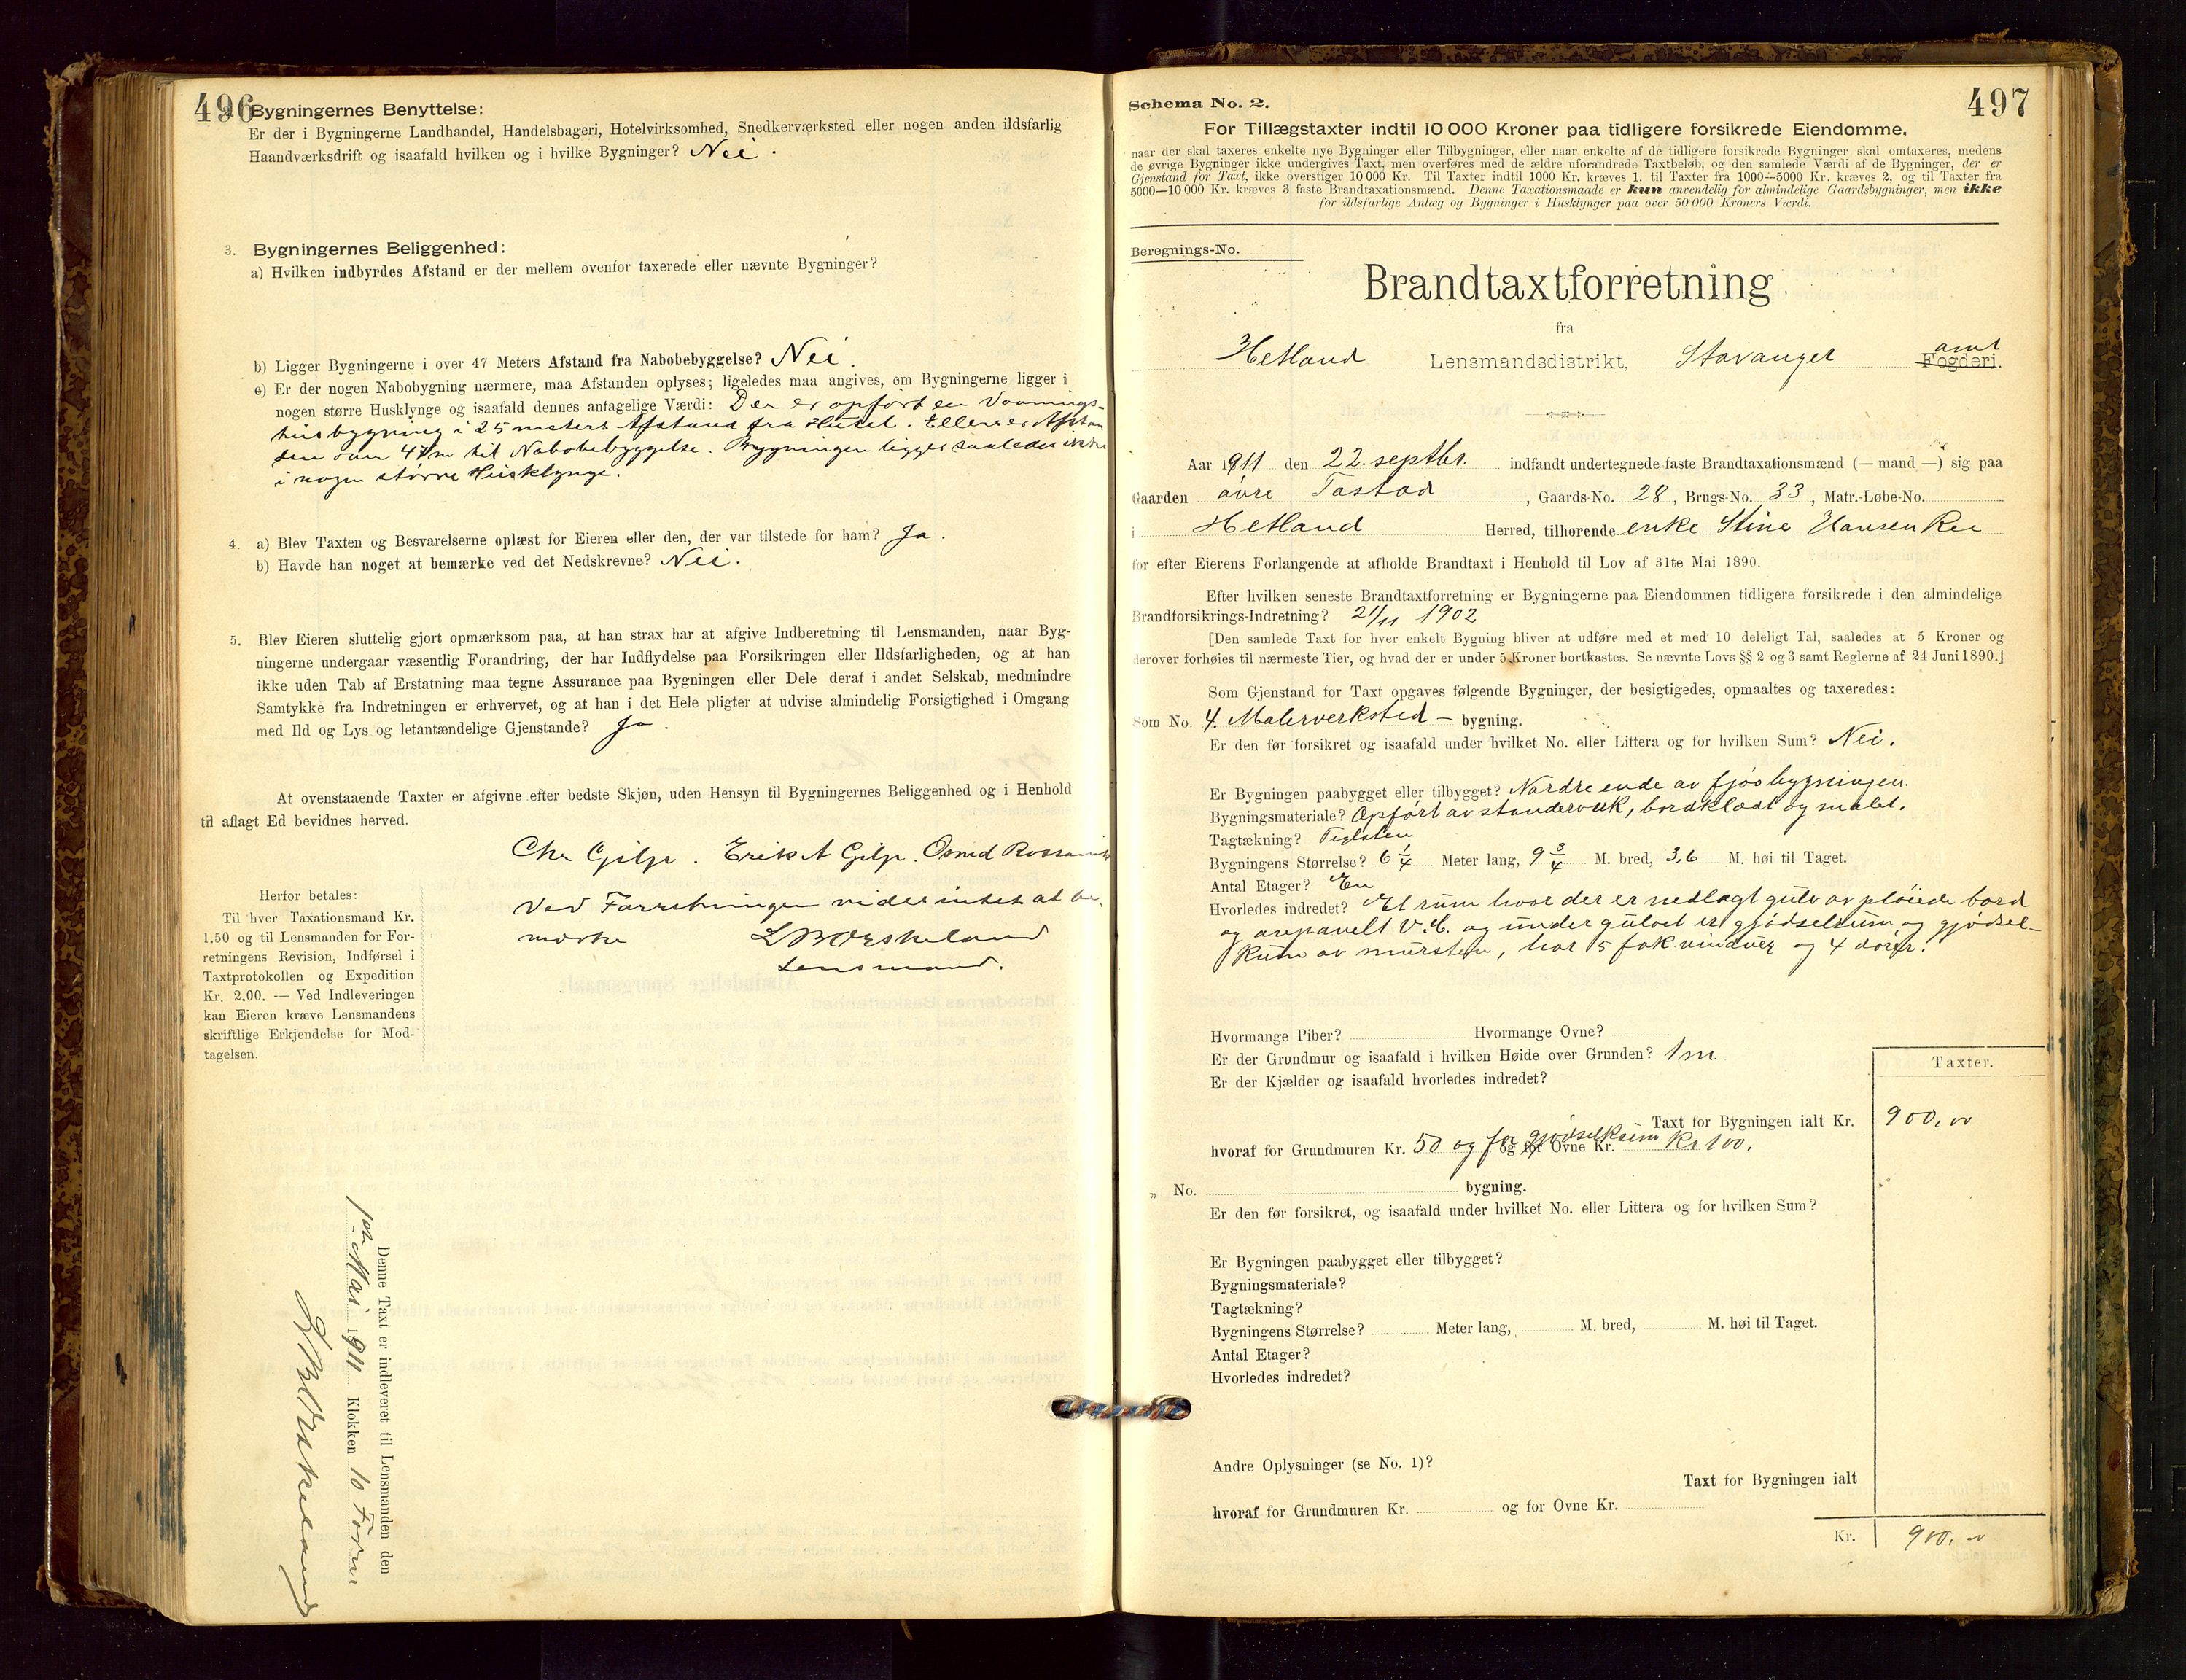 496
Bygningernes Benyttelse:
Er der i Bygningerne Landhandel, Handelsbageri, Hotelvirksomhed, Snedkerværksted eller nogen anden ildsfarlig
Haandværksdrift og isaafald hvilken og i hvilke Bygninger? Nei.
3. Bygningernes Beliggenhed:
a) Hvilken indbyrdes Afstand er der mellem ovenfor taxerede eller nævnte Bygninger?
b) Ligger Bygningerne i over 47 Meters Afstand fra Nabobebyggelse? Nei.
c) Er der nogen Nabobygning nærmere, maa Afstanden oplyses; ligeledes maa angives, om Bygningerne ligger i
nogen større Husklynge og isaafald dennes antagelige Værdi: Der er opført en Vaanings-
husbygning i 25 meters Afstand fra Huset. Ellers er Afstan
den over 47 m til Nabobebyggelse. Bygningen ligger saaledes ikke
i nogen større Husklynge.
4. a) Blev Taxten og Besvarelserne oplæst for Eieren eller den, der var tilstede for ham? Ja.
b) Havde han noget at bemærke ved det Nedskrevne? Nei.
5. Blev Eieren sluttelig gjort opmærksom paa, at han strax har at afgive Indberetning til Lensmanden, naar Byg-
ningerne undergaar væsentlig Forandring, der har Indflydelse paa Forsikringen eller Ildsfarligheden, og at han
ikke uden Tab af Erstatning maa tegne Assurance paa Bygningen eller Dele deraf i andet Selskab, medmindre
Samtykke fra Indretningen er erhvervet, og at han i det Hele pligter at udvise almindelig Forsigtighed i Omgang
med Ild og Lys og letantændelige Gjenstande? Ja.
At ovenstaaende Taxter er afgivne efter bedste Skjøn, uden Hensyn til Bygningernes Beliggenhed og i Henhold
til aflagt Ed bevidnes herved.
Chr Gilje. Erik A Gilje. Osmd
Ved Forretningen vides intet at be-
mærke
Lensmand.
Herfor betales:
Til hver Taxationsmand Kr.
1.50 og til Lensmanden for For-
retningens Revision, Indførsel i
Taxtprotokollen og Expedition
Kr. 2.00. — Ved Indleveringen
kan Eieren kræve Lensmandens
skriftlige Erkjendelse for Mod-
tagelsen.
Denne Taxt er indleveret til Lensmanden den
Mai 1911 Klokken 10 Form
497
Schema No. 2.
For Tillægstaxter indtil 10 000 Kroner paa tidligere forsikrede Eiendomme,
naar der skal taxeres enkelte nye Bygninger eller Tilbygninger, eller naar enkelte af de tidligere forsikrede Bygninger skal omtaxeres, medens
de øvrige Bygninger ikke undergives Taxt, men overføres med de ældre uforandrede Taxtbeløb, og den samlede Værdi af de Bygninger, der er
Gjenstand for Taxt, ikke overstiger 10 000 Kr. Til Taxter indtil 1000 Kr. kræves 1, til Taxter fra 1000—5000 Kr. kræves 2, og til Taxter fra
5000—10 000 Kr. kræves 3 faste Brandtaxationsmænd. Denne Taxationsmaade er kun anvendelig for almindelige Gaardsbygninger, men ikke
for ildsfarlige Anlæg og Bygninger i Husklynger paa over 50 000 Kroners Værdi.
Beregnings-No.
Brandtaxtforretning
fra
Hetland Lensmandsdistrikt, Stavanger amt Fogderi.
Aar 1911 den 22. septbr. indfandt undertegnede faste Brandtaxationsmænd (— mand —) sig paa
Gaarden øvre Tastad, Gaards-No. 28, Brugs-No. 33, Matr.-Løbe-No.
i Hetland Herred, tilhørende enke Stine Hansen
for efter Eierens Forlangende at afholde Brandtaxt i Henhold til Lov af 31te Mai 1890.
Efter hvilken seneste Brandtaxtforretning er Bygningerne paa Eiendommen tidligere forsikrede i den almindelige
Brandforsikrings-Indretning? 21/11 1902
[Den samlede Taxt for hver enkelt Bygning bliver at udføre med et med 10 deleligt Tal, saaledes at 5 Kroner og
derover forhøies til nærmeste Tier, og hvad der er under 5 Kroner bortkastes. Se nævnte Lovs §§ 2 og 3 samt Reglerne af 24 Juni 1890.]
Som Gjenstand for Taxt opgaves følgende Bygninger, der besigtigedes, opmaaltes og taxeredes:
Som No. 4. Malerverksted — bygning.
Er den før forsikret og isaafald under hvilket No. eller Littera og for hvilken Sum? Nei.
Er Bygningen paabygget eller tilbygget? Nordre ende av fjøsbygningen.
Bygningsmateriale? Opført av standerverk, bordklædt og malet.
Tagtækning? Teglsten
Bygningens Størrelse? 6 1/4 Meter lang, 9 3/4 M. bred, 3,6 M. høi til Taget.
Antal Etager? En
Hvorledes indredet? Et rum hvor der er nedlagt gulv av pløiede bord
og under gulvet er gjødselrum og gjødsel-
kum av mursten, har 5 fak vinduer og 4 dører.
Hvormange Piber? Hvormange Ovne?
Er der Grundmur og isaafald i hvilken Høide over Grunden? 1 m.
Er der Kjælder og isaafald hvorledes indredet?
Taxter.
Taxt for Bygningen ialt Kr. 900,00
hvoraf for Grundmuren Kr. 50 og for gjødselkum og for Ovne Kr. Kr 100.
„ No. bygning.
Er den før forsikret, og isaafald under hvilket No. eller Littera og for hvilken Sum?
Er Bygningen paabygget eller tilbygget?
Bygningsmateriale?
Tagtækning?
Bygningens Størrelse? Meter lang, M. bred, M. høi til Taget.
Antal Etager?
Hvorledes indredet?
Andre Oplysninger (se No. 1)?
Taxt for Bygningen ialt
hvoraf for Grundmuren Kr. og for Ovne Kr.
Kr. 900,00